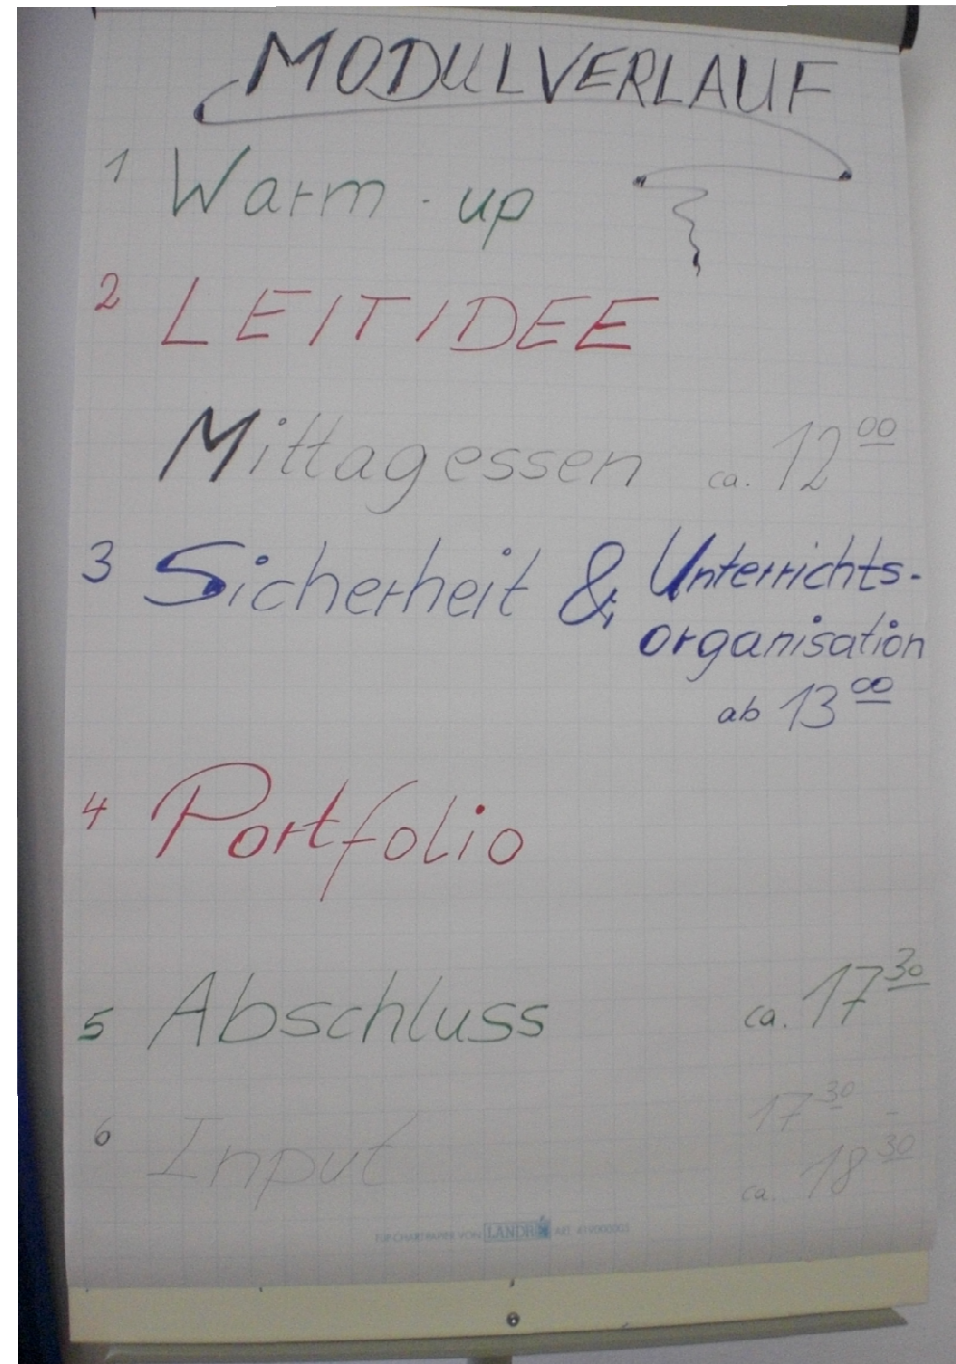 MODULVERLAUF
1 Warm-up
2 LEITIDEE
Mittagessen ca. 12 00
3 Sicherheit & Unterrichts-
organisation
ab 13 00
4 Portfolio
5 Abschluss ca. 17 30
17 30 -
6 Input ca. 18 30
FLIPCHARTPAPIER VON LANDRÉ ART.